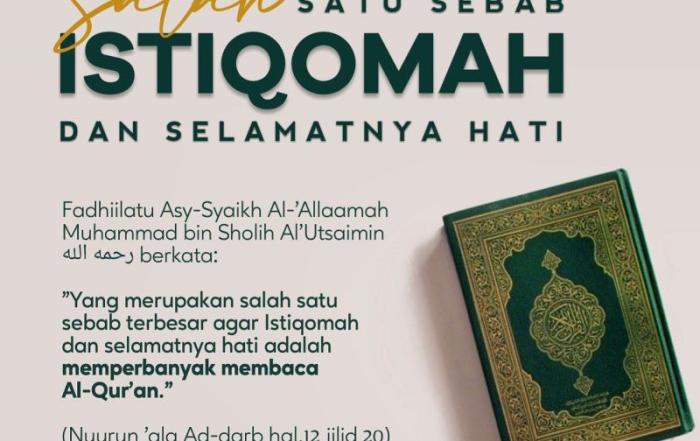 Salah SATU SEBAB
ISTIQOMAH
DAN SELAMATNYA HATI
Fadhiilatu Asy-Syaikh Al-'Allaamah
Muhammad bin Sholih Al'Utsaimin
رحمه الله berkata:
"Yang merupakan salah satu
sebab terbesar agar Istiqomah
dan selamatnya hati adalah
memperbanyak membaca
Al-Qur'an."
(Nuurun 'ala Ad-darb hal.12 jilid 20)